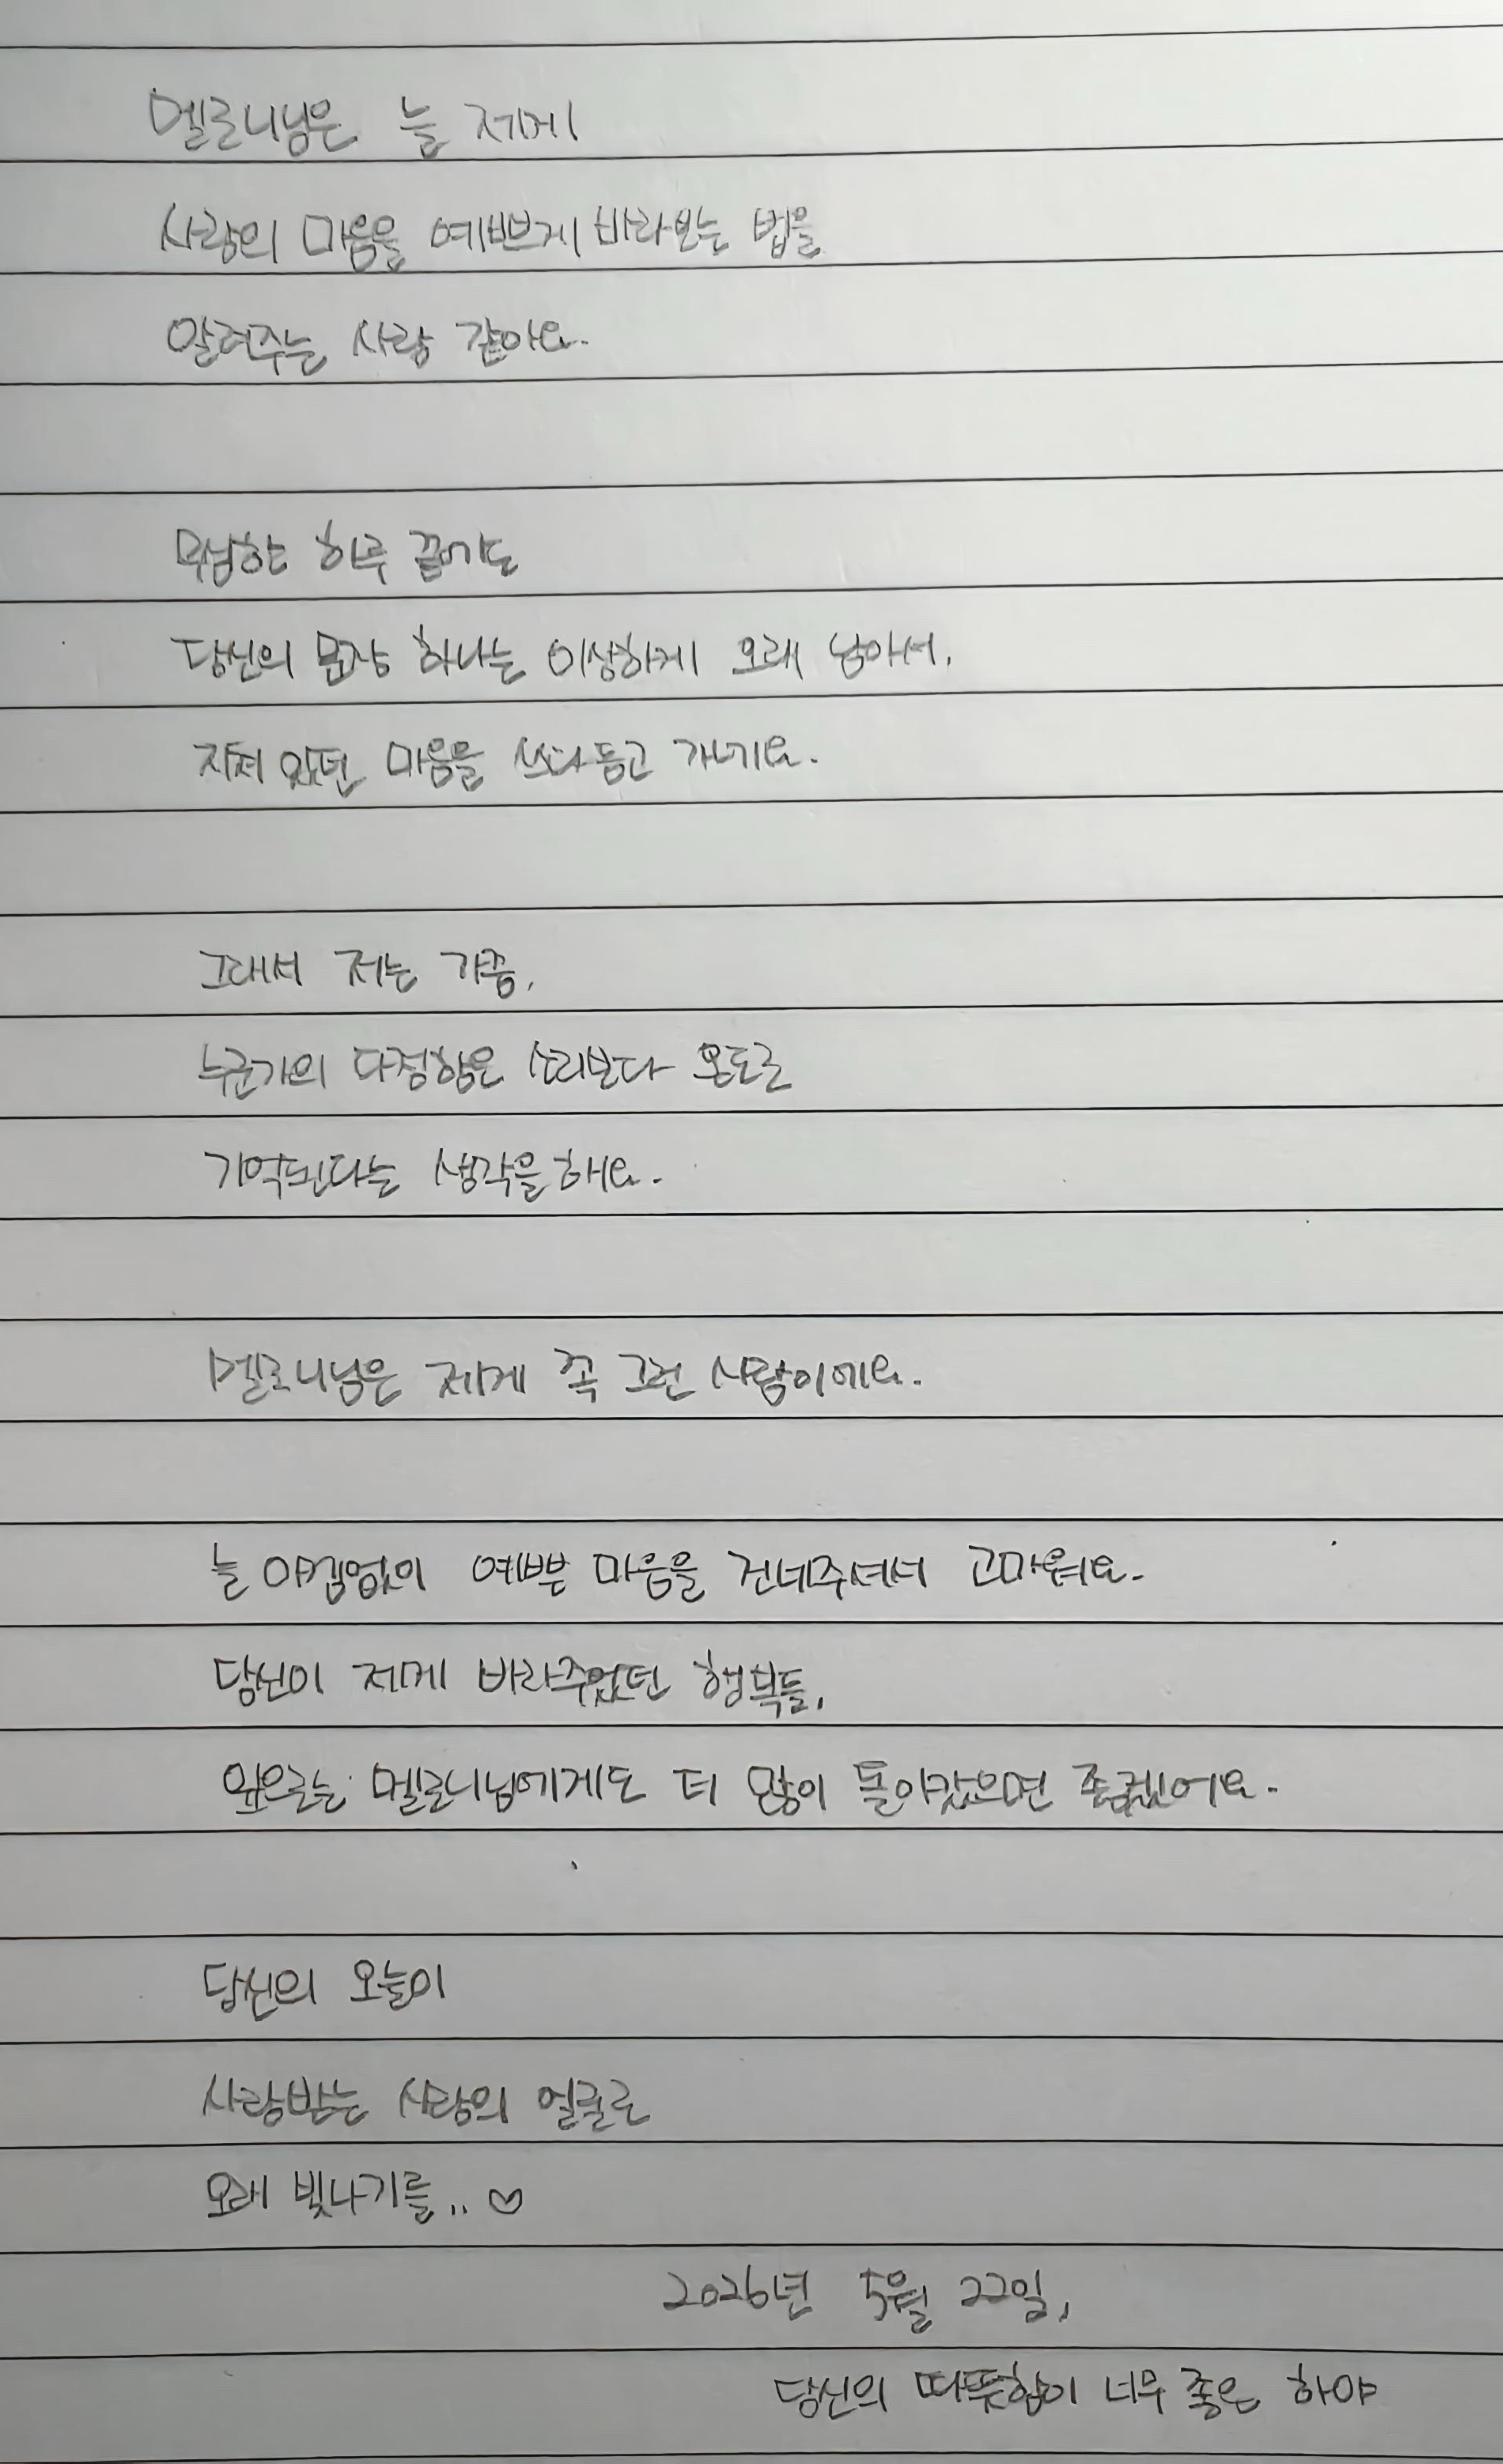 멜로니님은 늘 제게
사람의 마음을 예쁘게 바라보는 법을
알려주는 사람 같아요.
무심한 하루 끝에도
당신의 문장 하나는 이상하게 오래 남아서,
지쳐 있던 마음을 쓰다듬고 가네요.
그래서 저는 가끔,
누군가의 다정함은 소리보다 온도로
기억된다는 생각을 해요.
멜로니님은 제게 꼭 그런 사람이에요.
늘 아낌없이 예쁜 마음을 건네주셔서 고마워요.
당신이 제게 바라주었던 행복들,
앞으로는 멜로니님에게도 더 많이 돌아갔으면 좋겠어요.
당신의 오늘이
사랑받는 사람의 얼굴로
오래 빛나기를.. ♡
2026년 5월 22일,
당신의 따뜻함이 너무 좋은 하야